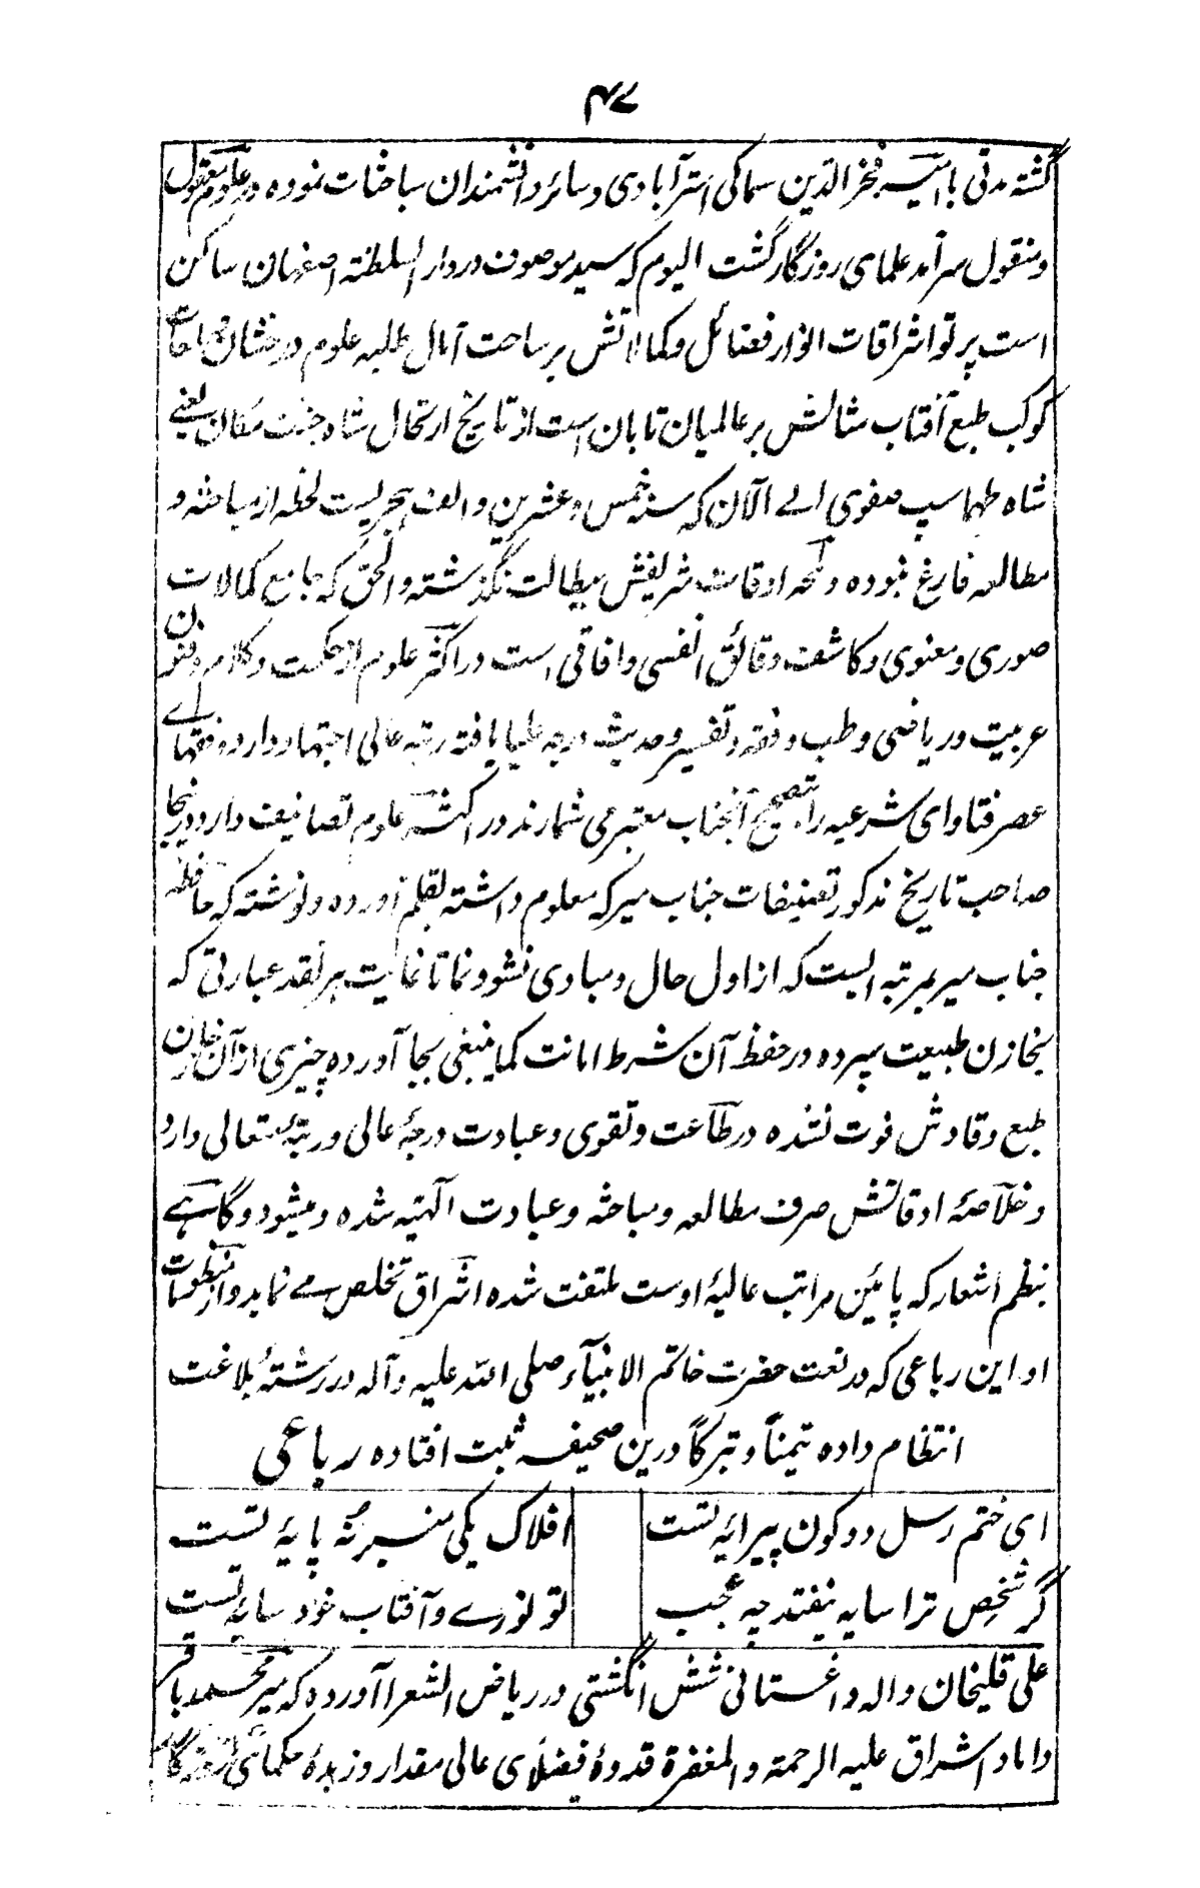 ۴۷
گشته مدتی با امیر فخرالدین سماکی استرآبادی و سائر دانشمندان مباحثات نموده در علوم معقول
و منقول سرآمد علمای روزگار گشت الیوم که سید موصوف در دار السلطنه اصفهان ساکن
است پرتو اشراقات انوار فضائل و کمالاتش بر ساحت آمال طلبه علوم درخشان
کوکب طبع آفتاب مثالش بر عالمیان تابان است از تاریخ ارتحال شاه جنت مکان یعنے
شاه طهماسپ صفوی الے الآن که سنه خمس و عشرین و الف هجریست لحظه از مباحثه و
مطالعه فارغ نبوده و لمحه اوقات شریفش ببطالت نگذشته و الحق که جامع کمالات
صوری و معنوی و کاشف دقائق انفسی و افاقی است در اکثر علوم از حکمت و کلام و فنون
عربیت و ریاضی و طب و فقه و تفسیر و حدیث درجه علیا یافته رتبه عالی اجتهاد دارد و فقهاے
عصر فتاوای شرعیه را بتصحیح آنجناب معتبر می شمارند در اکثر علوم تصانیف دارد درینجا
صاحب تاریخ مذکور تصنیفات جناب میر که معلوم داشته بقلم آورده و نوشته که حافظه
جناب میر بمرتبه ایست که از اول حال و مبادی نشو و نما تا غایت هر نقد عبارتی که
بخازن طبیعت سپرده در حفظ آن شرط امانت کما ینبغی بجا آورده چیزی ازآن خازن
طبع وقادش فوت نشده در طاعت و تقوی و عبادت درجهٔ عالی و رتبهٔ متعالی دارد
و خلاصهٔ اوقاتش صرف مطالعه و مباحثه و عبادت الهیه شده و میشود و گاہے
بنظم اشعار که پائین مراتب عالیهٔ اوست ملتفت شده اشراق تخلص مے نماید و از منظومات
او این رباعی که در نعت حضرت خاتم الانبیآء صلی الله علیه و آله در رشتهٔ بلاغت
انتظام داده تیمناً و تبرکاً درین صحیفه ثبت افتاده رباعی
ای ختم رسل دو کون پیرایهٔ تست افلاک یکی منبر نُه پایهٔ تست
گر شخص ترا سایه نیفتد چه عجب تو نورے و آفتاب خود سایهٔ تست
علی قلیخان واله داغستانی شش انگشتی در ریاض الشعرا آورده که میر محمد باقر
داماد اشراق علیه الرحمة و المغفرة قدوهٔ فضلای عالی مقدار و زبدهٔ حکمای